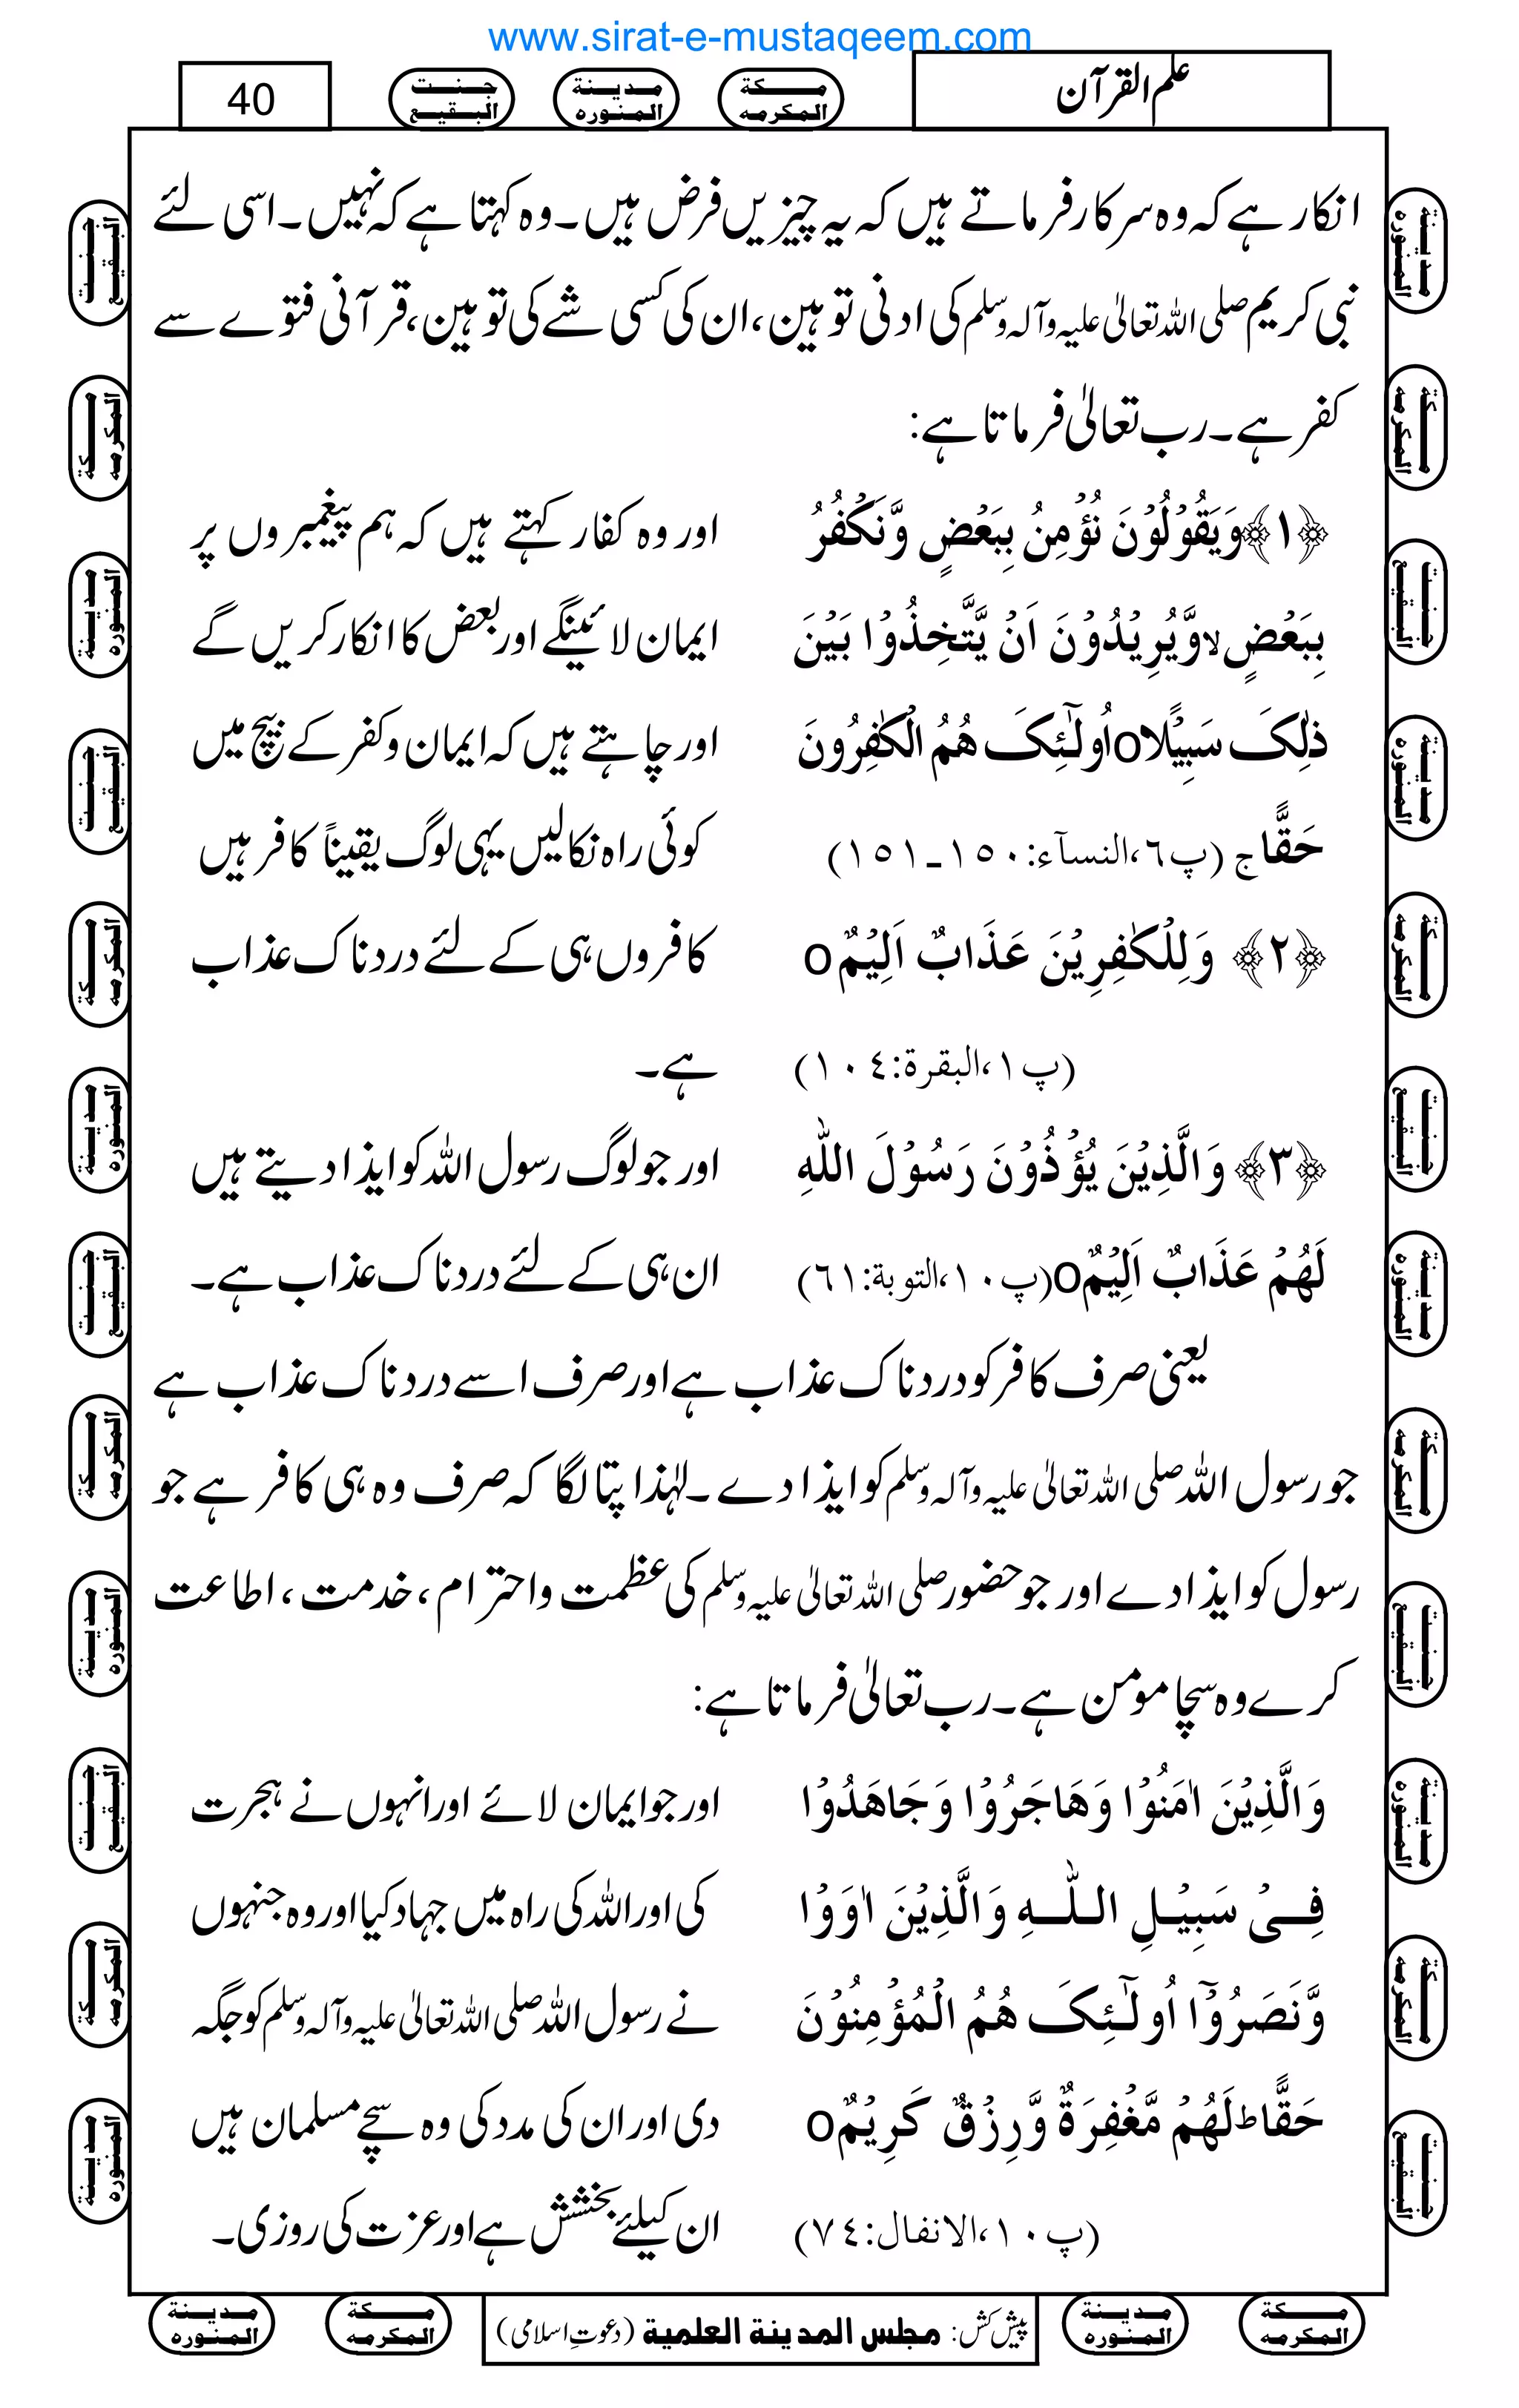 www.sirat-e-mustaqeem.com
علم القرآن
مكة المكرمه
مدينة المنوره
جنت البقيع
40
انکار ہے کہ وہ سرکار فرماتے ہیں کہ یہ چیزیں فرض ہیں۔ وہ کہتا ہے کہ نہیں۔ اسی لئے
نبی کریم صلی اللہ تعالیٰ علیہ وآلہ وسلم کی ادنی توہین، ان کی کسی شے کی توہین، قرآنی فتوے سے
کفر ہے۔ رب تعالیٰ فرماتا ہے:
﴿١﴾وَيَقُوْلُوْنَ نُؤْمِنُ بِبَعْضٍ وَّنَكْفُرُ
اور وہ کفار کہتے ہیں کہ ہم پیغمبروں پر
بِبَعْضٍ لا وَّيُرِيْدُوْنَ اَنْ يَّتَّخِذُوْا بَيْنَ
ایمان لائینگے اور بعض کا انکار کریں گے
ذٰلِكَ سَبِيْلًا oاُولٰٓئِكَ هُمُ الْكٰفِرُوْنَ
اور چاہتے ہیں کہ ایمان و کفر کے بیچ میں
حَقًّا ج (پ٦،النسآء:١٥٠۔١٥١)
کوئی راہ نکالیں یہی لوگ یقیناً کافر ہیں
﴿٢﴾ وَلِلْكٰفِرِيْنَ عَذَابٌ اَلِيْمٌ o
کافروں ہی کے لئے دردناک عذاب
(پ١،البقرة:١٠٤)
ہے۔
﴿٣﴾ وَالَّذِيْنَ يُؤْذُوْنَ رَسُوْلَ اللّٰهِ
اور جو لوگ رسول اللہ کو ایذا دیتے ہیں
لَهُمْ عَذَابٌ اَلِيْمٌ o(پ١٠،التوبة:٦١)
ان ہی کے لئے دردناک عذاب ہے۔
یعنی صرف کافر کو دردناک عذاب ہے اور صرف اسے دردناک عذاب ہے
جو رسول اللہ صلی اللہ تعالیٰ علیہ وآلہ وسلم کو ایذا دے۔ لہٰذا پتا لگا کہ صرف وہ ہی کافر ہے جو
رسول کو ایذا دے اور جو حضور صلی اللہ تعالیٰ علیہ وسلم کی عظمت واحترام، خدمت، اطاعت
کرے وہ سچا مومن ہے۔ رب تعالیٰ فرماتا ہے:
وَالَّذِيْنَ اٰمَنُوْا وَهَاجَرُوْا وَجَاهَدُوْا
اور جو ایمان لائے اور انہوں نے ہجرت
فِىْ سَبِيْلِ اللّٰهِ وَالَّذِيْنَ اٰوَوْا
کی اور اللہ کی راہ میں جہاد کیا اور وہ جنہوں
وَّنَصَرُوْٓا اُولٰٓئِكَ هُمُ الْمُؤْمِنُوْنَ
نے رسول اللہ صلی اللہ تعالیٰ علیہ وآلہ وسلم کو جگہ
حَقًّا ط لَهُمْ مَّغْفِرَةٌ وَّرِزْقٌ كَرِيْمٌ o
دی اور ان کی مدد کی وہ سچے مسلمان ہیں
(پ١٠،الانفال:٧٤)
ان کیلئے بخشش ہے اور عزت کی روزی۔
مكة المكرمه
مدينة المنوره
پیش کش: مجلس المدينة العلمية (دعوتِ اسلامی)
مكة المكرمه
مدينة المنوره